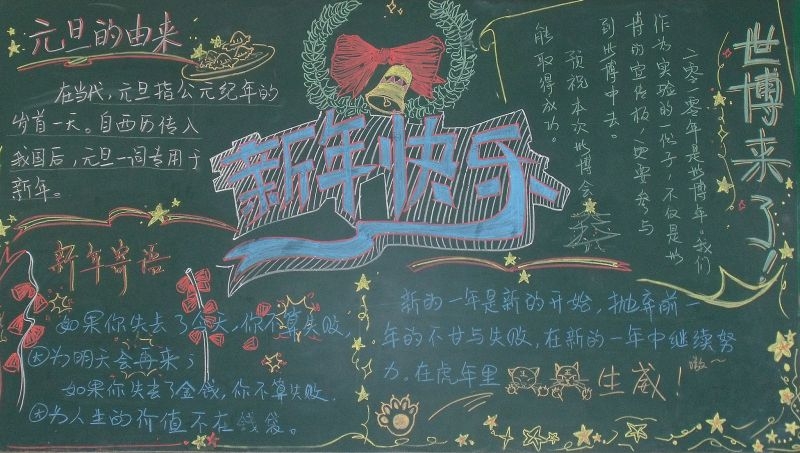 元旦的由来
在当代，元旦指公元纪年的
岁首一天。自西历传入
我国后，元旦一词专用于
新年。
新年快乐
世博来了！
二零一零年是世博年。我们
作为实验的一份子，不仅是世
博的宣传板，更要参与
到世博中去。
预祝本次世博会
能取得成功。
新年寄语
如果你失去了今天，你不算失败，
因为明天会再来；
如果你失去了金钱，你不算失败，
因为人生的价值不在钱袋。
新的一年是新的开始，抛弃前一
年的不甘与失败，在新的一年中继续努
力。在虎年里 生威！
嗷～